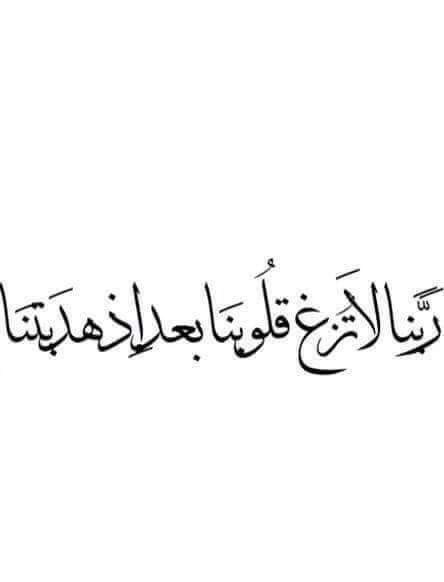 ربَّنا لا تَزغ قلُوبنَا بعد إذ هدَيتنَا